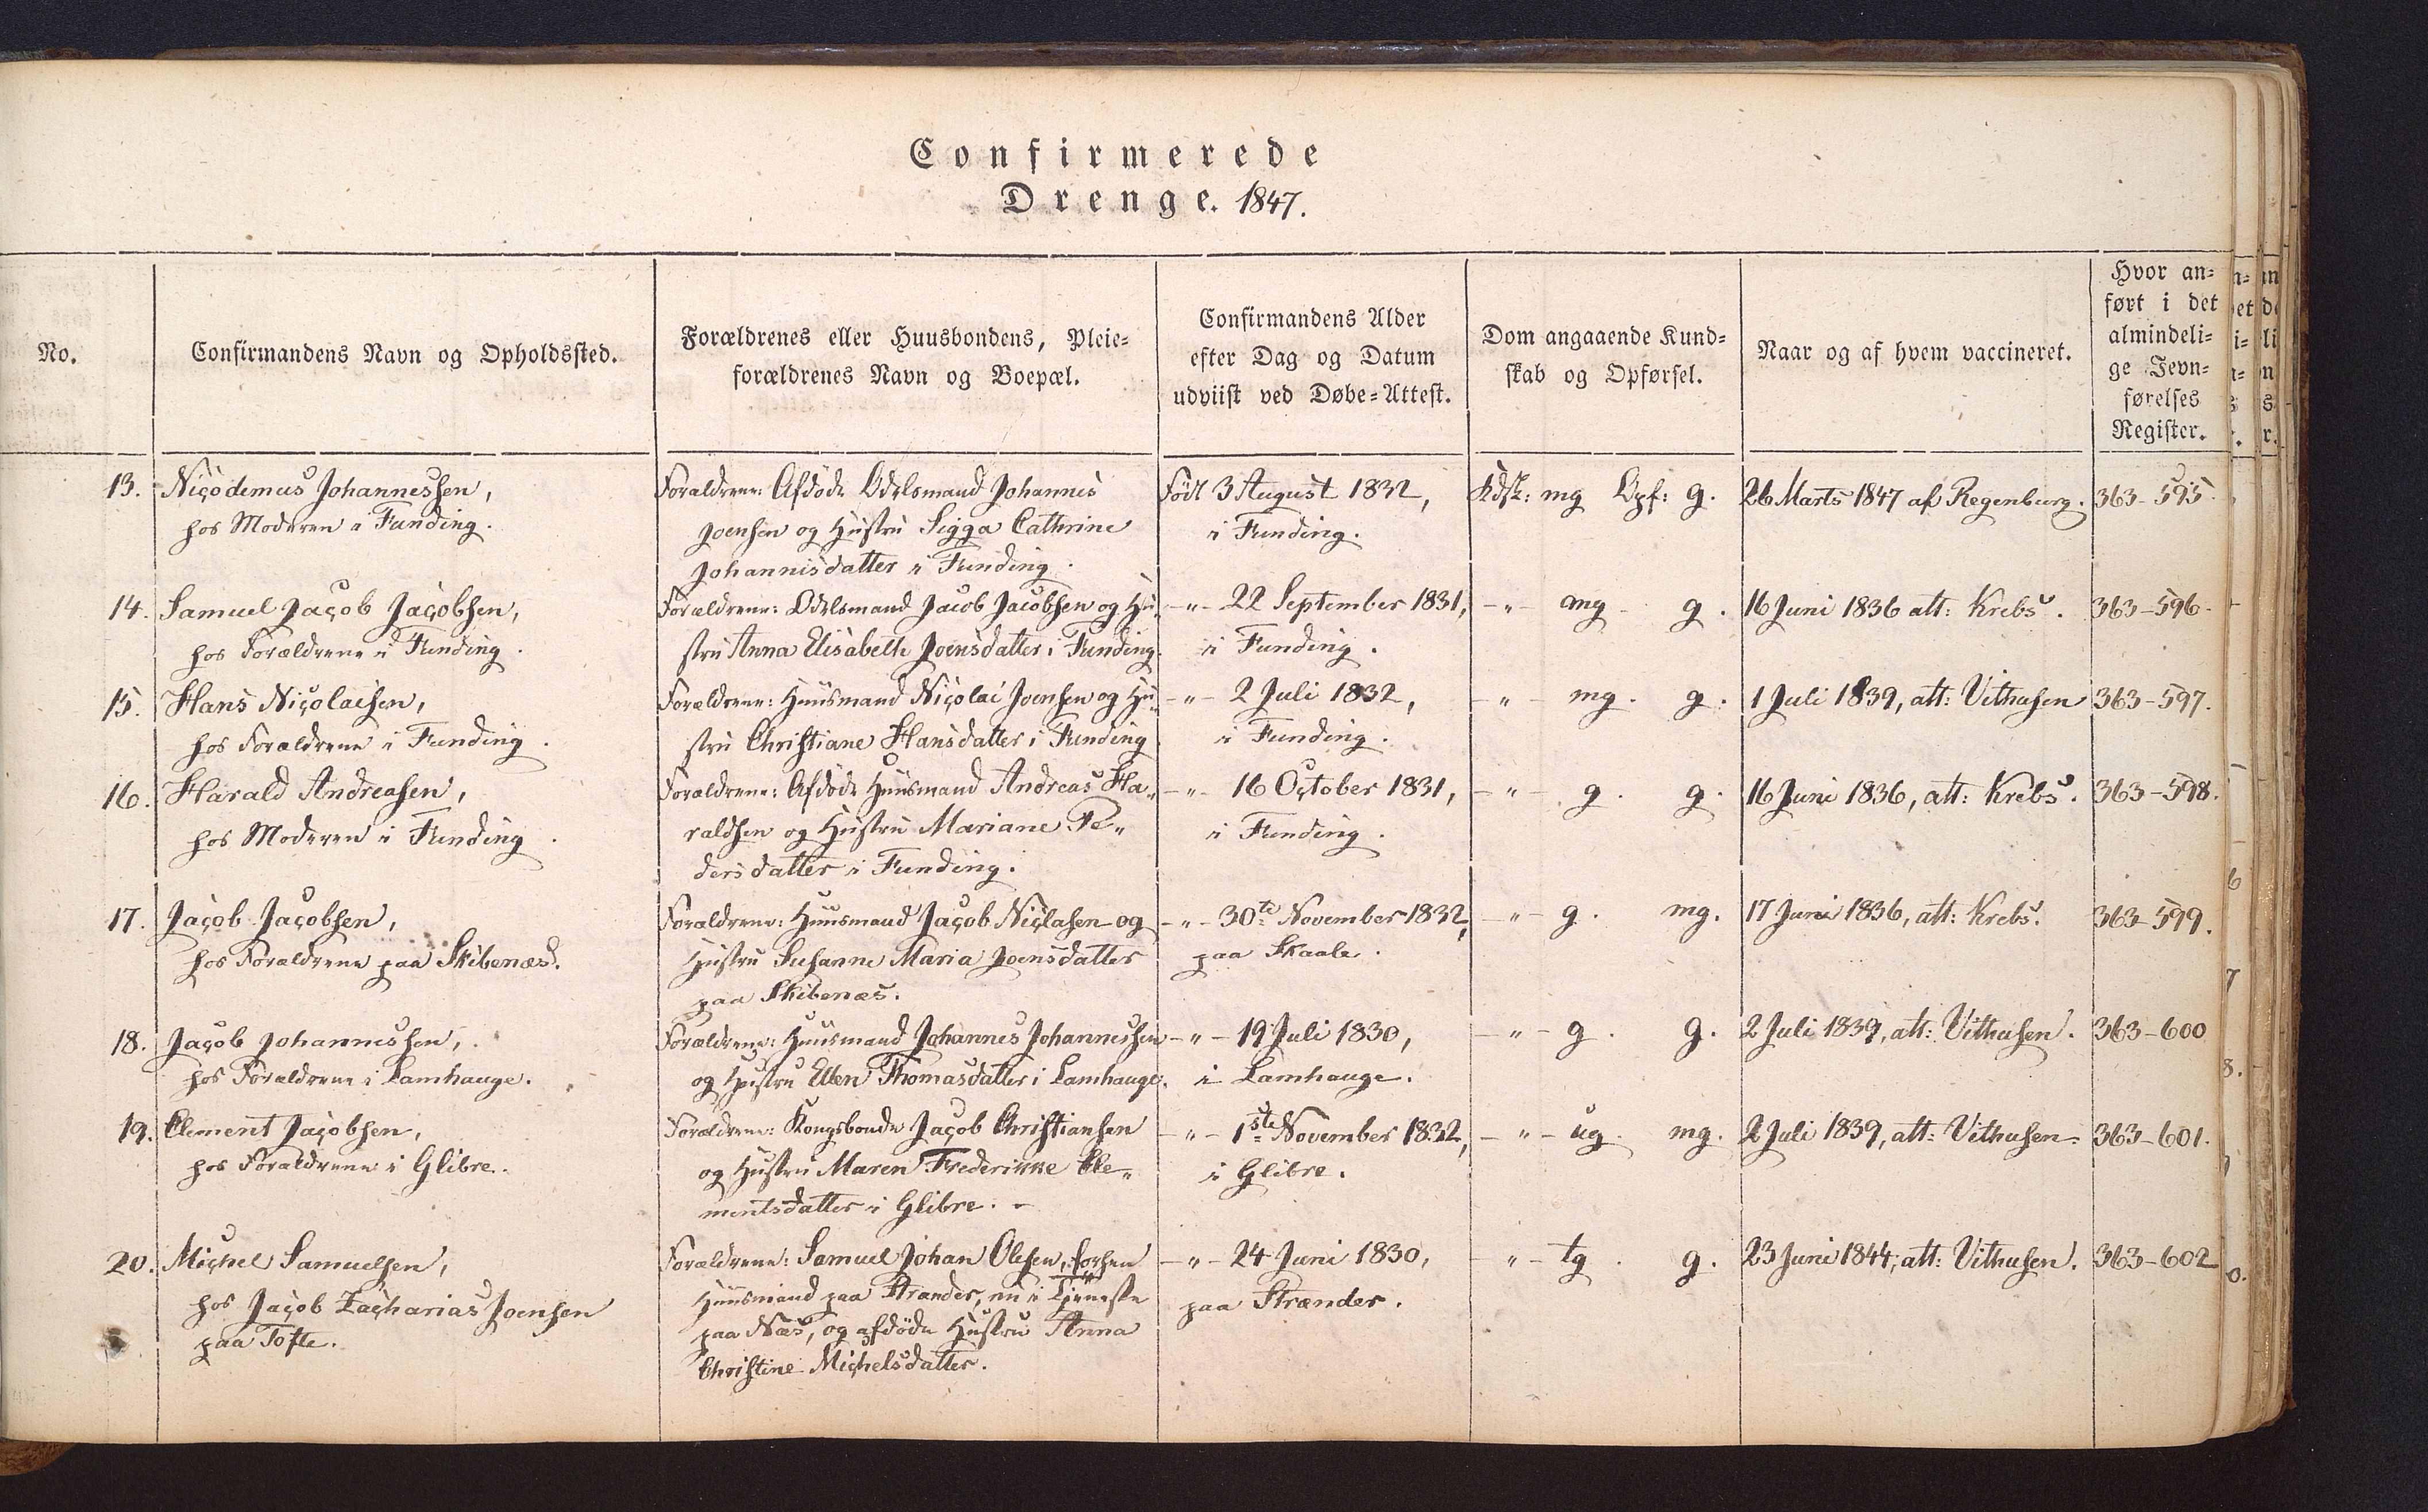 Confirmerede
Drenge. 1847.
No.
Confirmandens Navn og Opholdssted.
Forældrenes eller Huusbondens, Pleie-
forældrenes Navn og Boepæl.
Confirmandens Alder
efter Dag og Datum
udviist ved Døbe-Attest.
Dom angaaende Kund-
skab og Opførsel.
Naar og af hvem vaccineret.
Hvor an-
ført i det
almindeli-
ge Jevn-
førelses
Register.
13.
Nicodemus Johannessen,
hos Moderen i Funding.
Forældrene: Afdöde Odelsmand Johannes
Joensen og Hustru Sigga Cathrine
Johannisdatter i Funding.
Född 3 August 1832,
i Funding.
Kdsk: mg Opf: g.
26 Marts 1847 af Regenburg.
363-595.
14.
Samuel Jacob Jacobsen,
hos Forældrene i Funding.
Forældrene: Odelsmand Jacob Jacobsen og Hu-
stru Anna Elisabeth Joensdatter i Funding.
-"- 22 September 1831,
i Funding.
-"- mg - g.
16 Juni 1836 att: Krebs.
363-596.
15.
Hans Nicolaisen,
hos Forældrene i Funding.
Forældrene: Huusmand Nicolai Joensen og Hu-
stru Christiane Hansdatter i Funding
-"- 2 Juli 1832,
i Funding.
-"- mg. g.
1 Juli 1839, att: Vithusen
363-597.
16.
Harald Andreasen,
hos Moderen i Funding.
Forældrene: Afdöde Huusmand Andreas Ha-
raldsen og Hustru Mariane Pe-
dersdatter i Funding.
-"- 16 October 1831,
i Funding.
-"- g. g.
16 Juni 1836, att: Krebs.
363-598.
17.
Jacob Jacobsen,
hos Forældrene paa Skibenæs.
Forældrene: Huusmand Jacob Niclasen og
Hustru Susanne Maria Joensdatter
paa Skibenæs.
-"- 30te November 1832,
paa Skaale.
-"- g. mg.
17 Juni 1836, att: Krebs.
363-599.
18.
Jacob Johannessen,
hos Forældrene i Lamhauge.
Forældrene: Huusmand Johannes Johannessen
og Hustru Ellen Thomasdatter i Lamhauge.
-"- 19 Juli 1830,
i Lamhauge.
-"- g. g.
2 Juli 1839, att: Vithusen.
363-600
19.
Clement Jacobsen,
hos Forældrene i Glibre.
Forældrene: Kongsbonde Jacob Christiansen
og Hustru Maren Frederikke Cle-
mentsdatter i Glibre. -
-"- 1ste November 1832,
i Glibre.
-"- ug. mg.
2 Juli 1839, att: Vithusen.
363-601.
20.
Michel Samuelsen,
hos Jacob Zacharias Joensen
paa Tofte.
Forældrene: Samuel Johan Olesen, forhen
Huusmand paa Strander, nu i Tjeneste
paa Næs, og afdöde Hustru Anna
Christine Michelsdatter.
-"- 24 Juni 1830,
paa Strænder.
-"- tg. g.
23 Juni 1844, att: Vithusen.
363-602